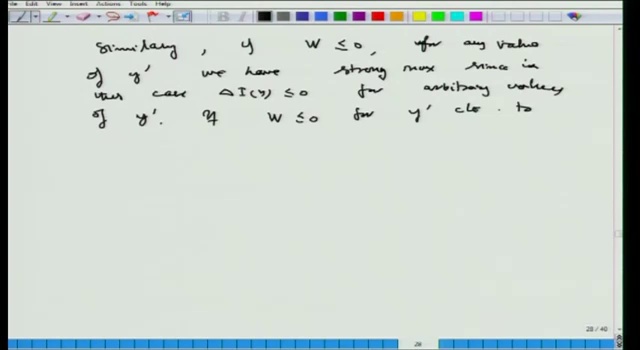 File View Insert Actions Tools Help
Similary, if W ≤ 0, for any value
of y' we have strong max since in
this case ΔI(y) ≤ 0 for arbitrary values
of y'. If W ≤ 0 for y' clo to
28 / 40
28